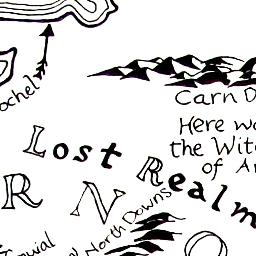 ochel
Carn D
Here wa
the Witc
of An
Lost Realm
R N O
North Downs